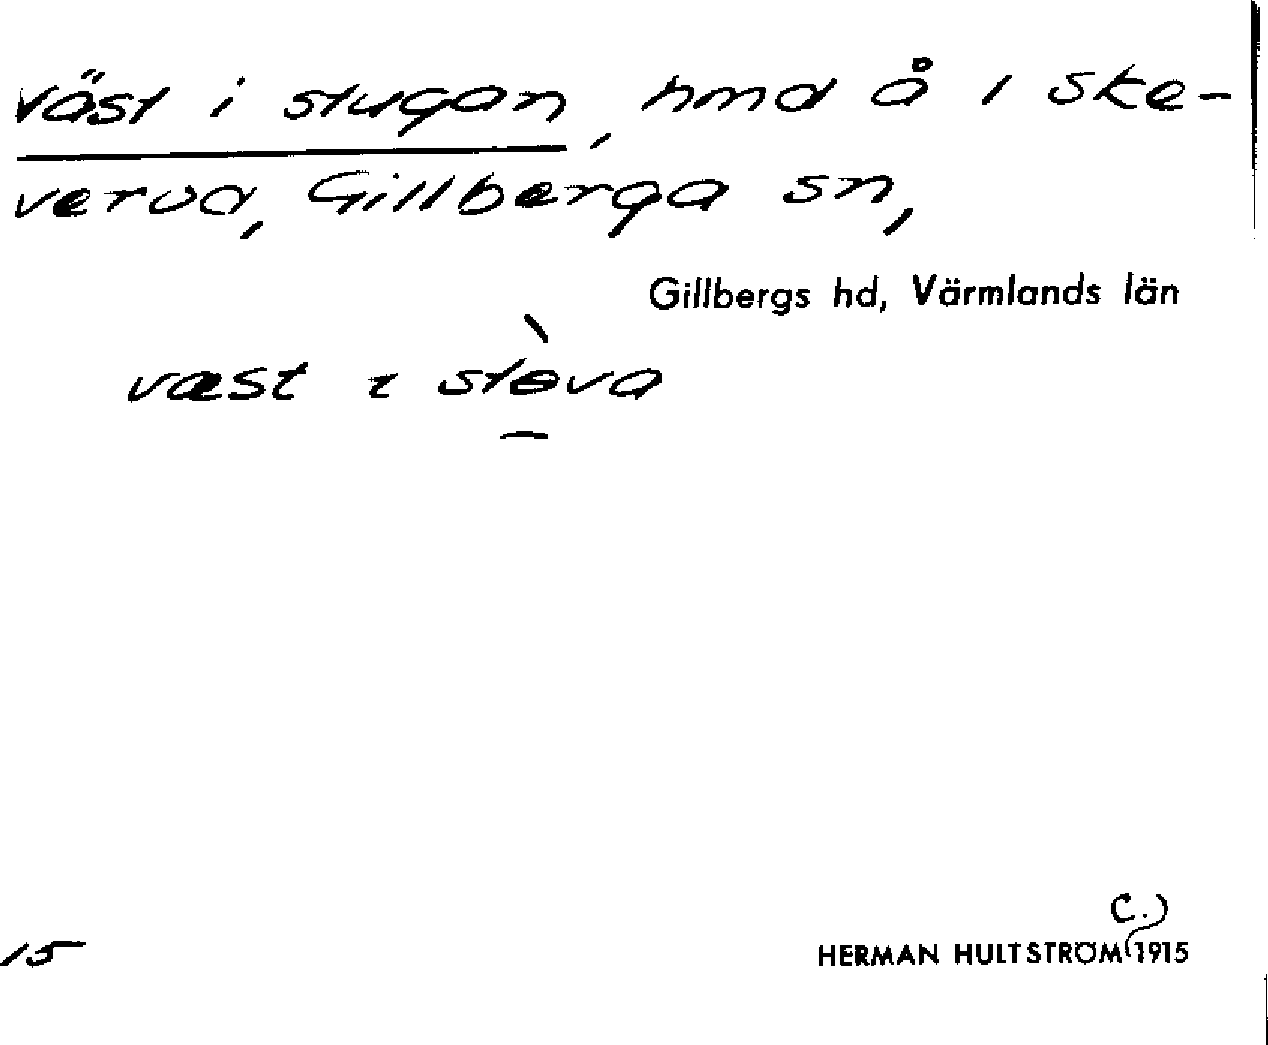 väst i stugan, hmd å 1 Ske-
verud, Gillberga sn,
Gillbergs hd, Värmlands län
væst ɩ stèva
15
C.)
HERMAN HULTSTRÖM 1915